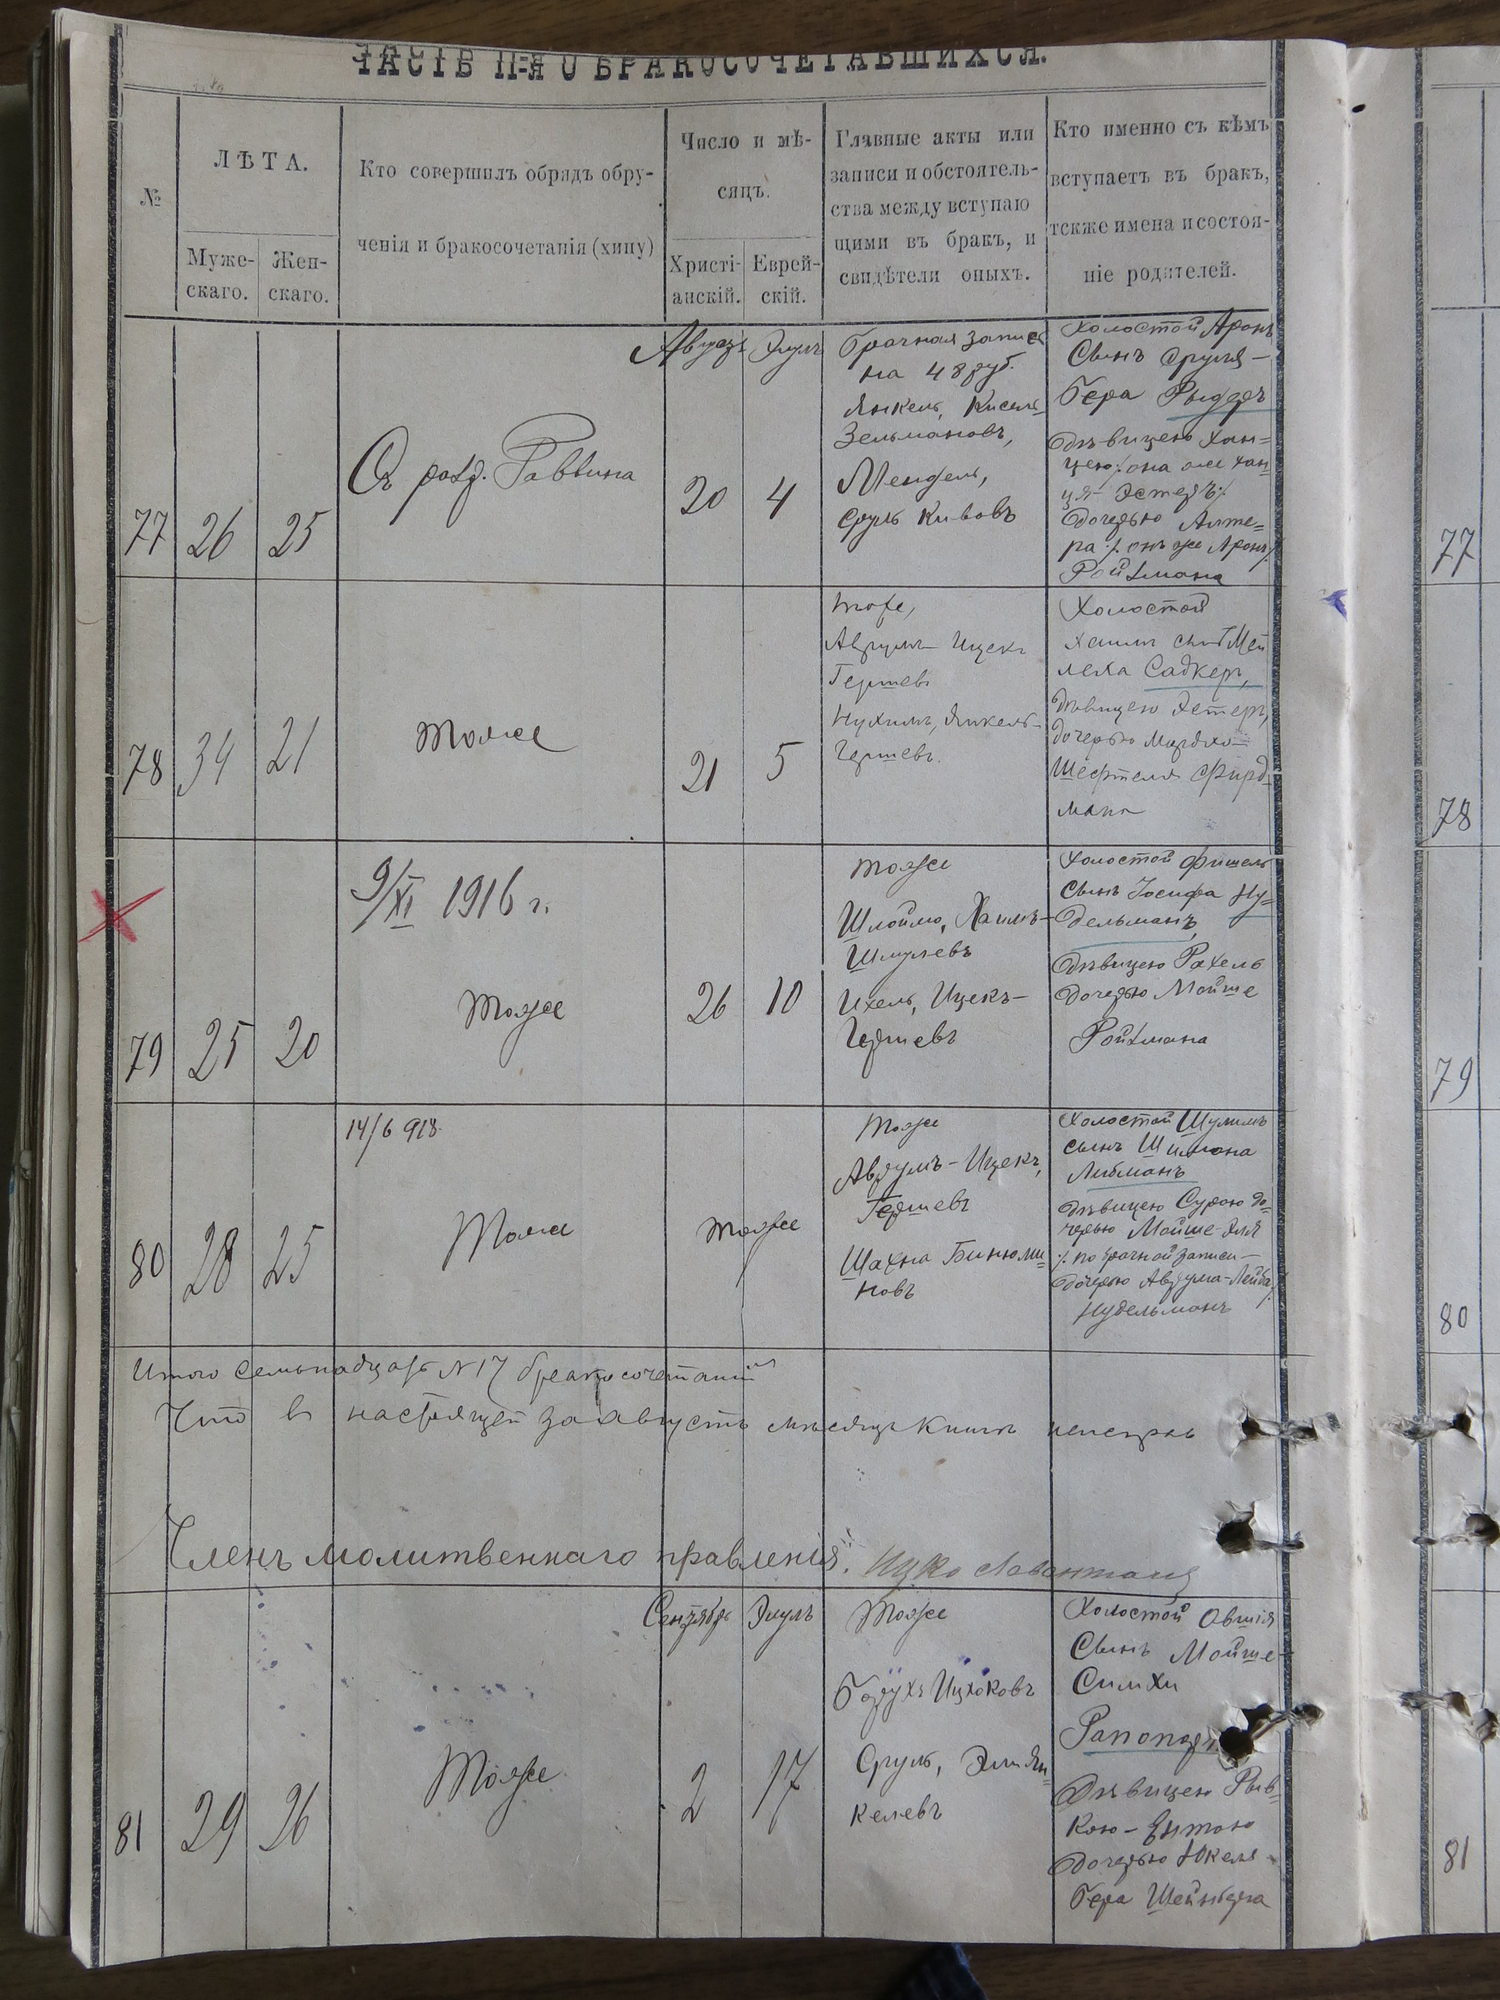 ЧАСТЬ II-Я О БРАКОСОЧЕТАВШИХСЯ.
№
ЛѢТА.
Муже-
скаго.
Жен-
скаго.
Кто совершилъ обрядъ обру-
ченія и бракосочетанія (хипу)
Число и мѣ-
сяцъ.
Христі-
анскій.
Еврей-
скій.
Главные акты или
записи и обстоятель-
ства между вступаю
щими въ бракъ, и
свидѣтели оныхъ.
Кто именно съ кѣмъ
вступаетъ въ бракъ,
также имена и состоя-
ніе родителей.
77
26
25
Съ разр. Раввина
Августъ
20
Элулъ
4
Брачная запись
на 48 руб.
Янкель, Кисель
Зельмановъ,
Мендель,
Сруль Кивовъ
Холостой Аронъ
Сынъ Сруля-
Бера Рыдеръ
дѣвицею Хан=
цею /: она же Хан=
ця-Эстеръ :/
дочерью Алте=
ра /: онъ же Аронъ :/
Ройтмана
77
78
34
21
Тоже
21
5
тоже,
Аврумъ-Ицекъ
Гершевъ
Нухимъ, Янкель-
Гершевъ.
Холостой
Хаимъ сынъ Мей
леха Садкеръ,
дѣвицею Эстеръ,
дочерью Мордко-
Шефтеля Фирд=
мана
78
79
25
20
9/XI 1916 г.
Тоже
26
10
тоже
Шлоймо, Хаимъ-
Шмулевъ
Ихель, Ицекъ-
Гершевъ
Холостой Фишель
сынъ Іосифа Ну=
дельманъ,
дѣвицею Рахель
дочерью Мойше
Ройтмана
79
80
28
25
14/6 918
Тоже
Тоже
Тоже
Аврумъ-Ицекъ,
Гершевъ
Шахна Бинюми
новъ
Холостой Шулимъ
сынъ Шимона
Либманъ
дѣвицею Сурою до=
черью Мойше-Эля
/: по брачной записи-
дочерью Аврума-Лейба :/
Нудельманъ
80
Итого семьнадцать N 17 бракосочетаній
Что въ настоящей за Августъ мѣсяцъ книгѣ
Членъ молитвеннаго правленія.
81
29
26
Тоже
Сентябрь
2
Элулъ
17
Тоже
Борухъ Ицковъ
Сруль, Эли Ян=
келевъ
Холостой Овшія
Сынъ Мойше-
Симхи
Рапопортъ
дѣвицею Рыв=
кою-Ентою
дочерью Юкеля
Бера Шейнберга
81